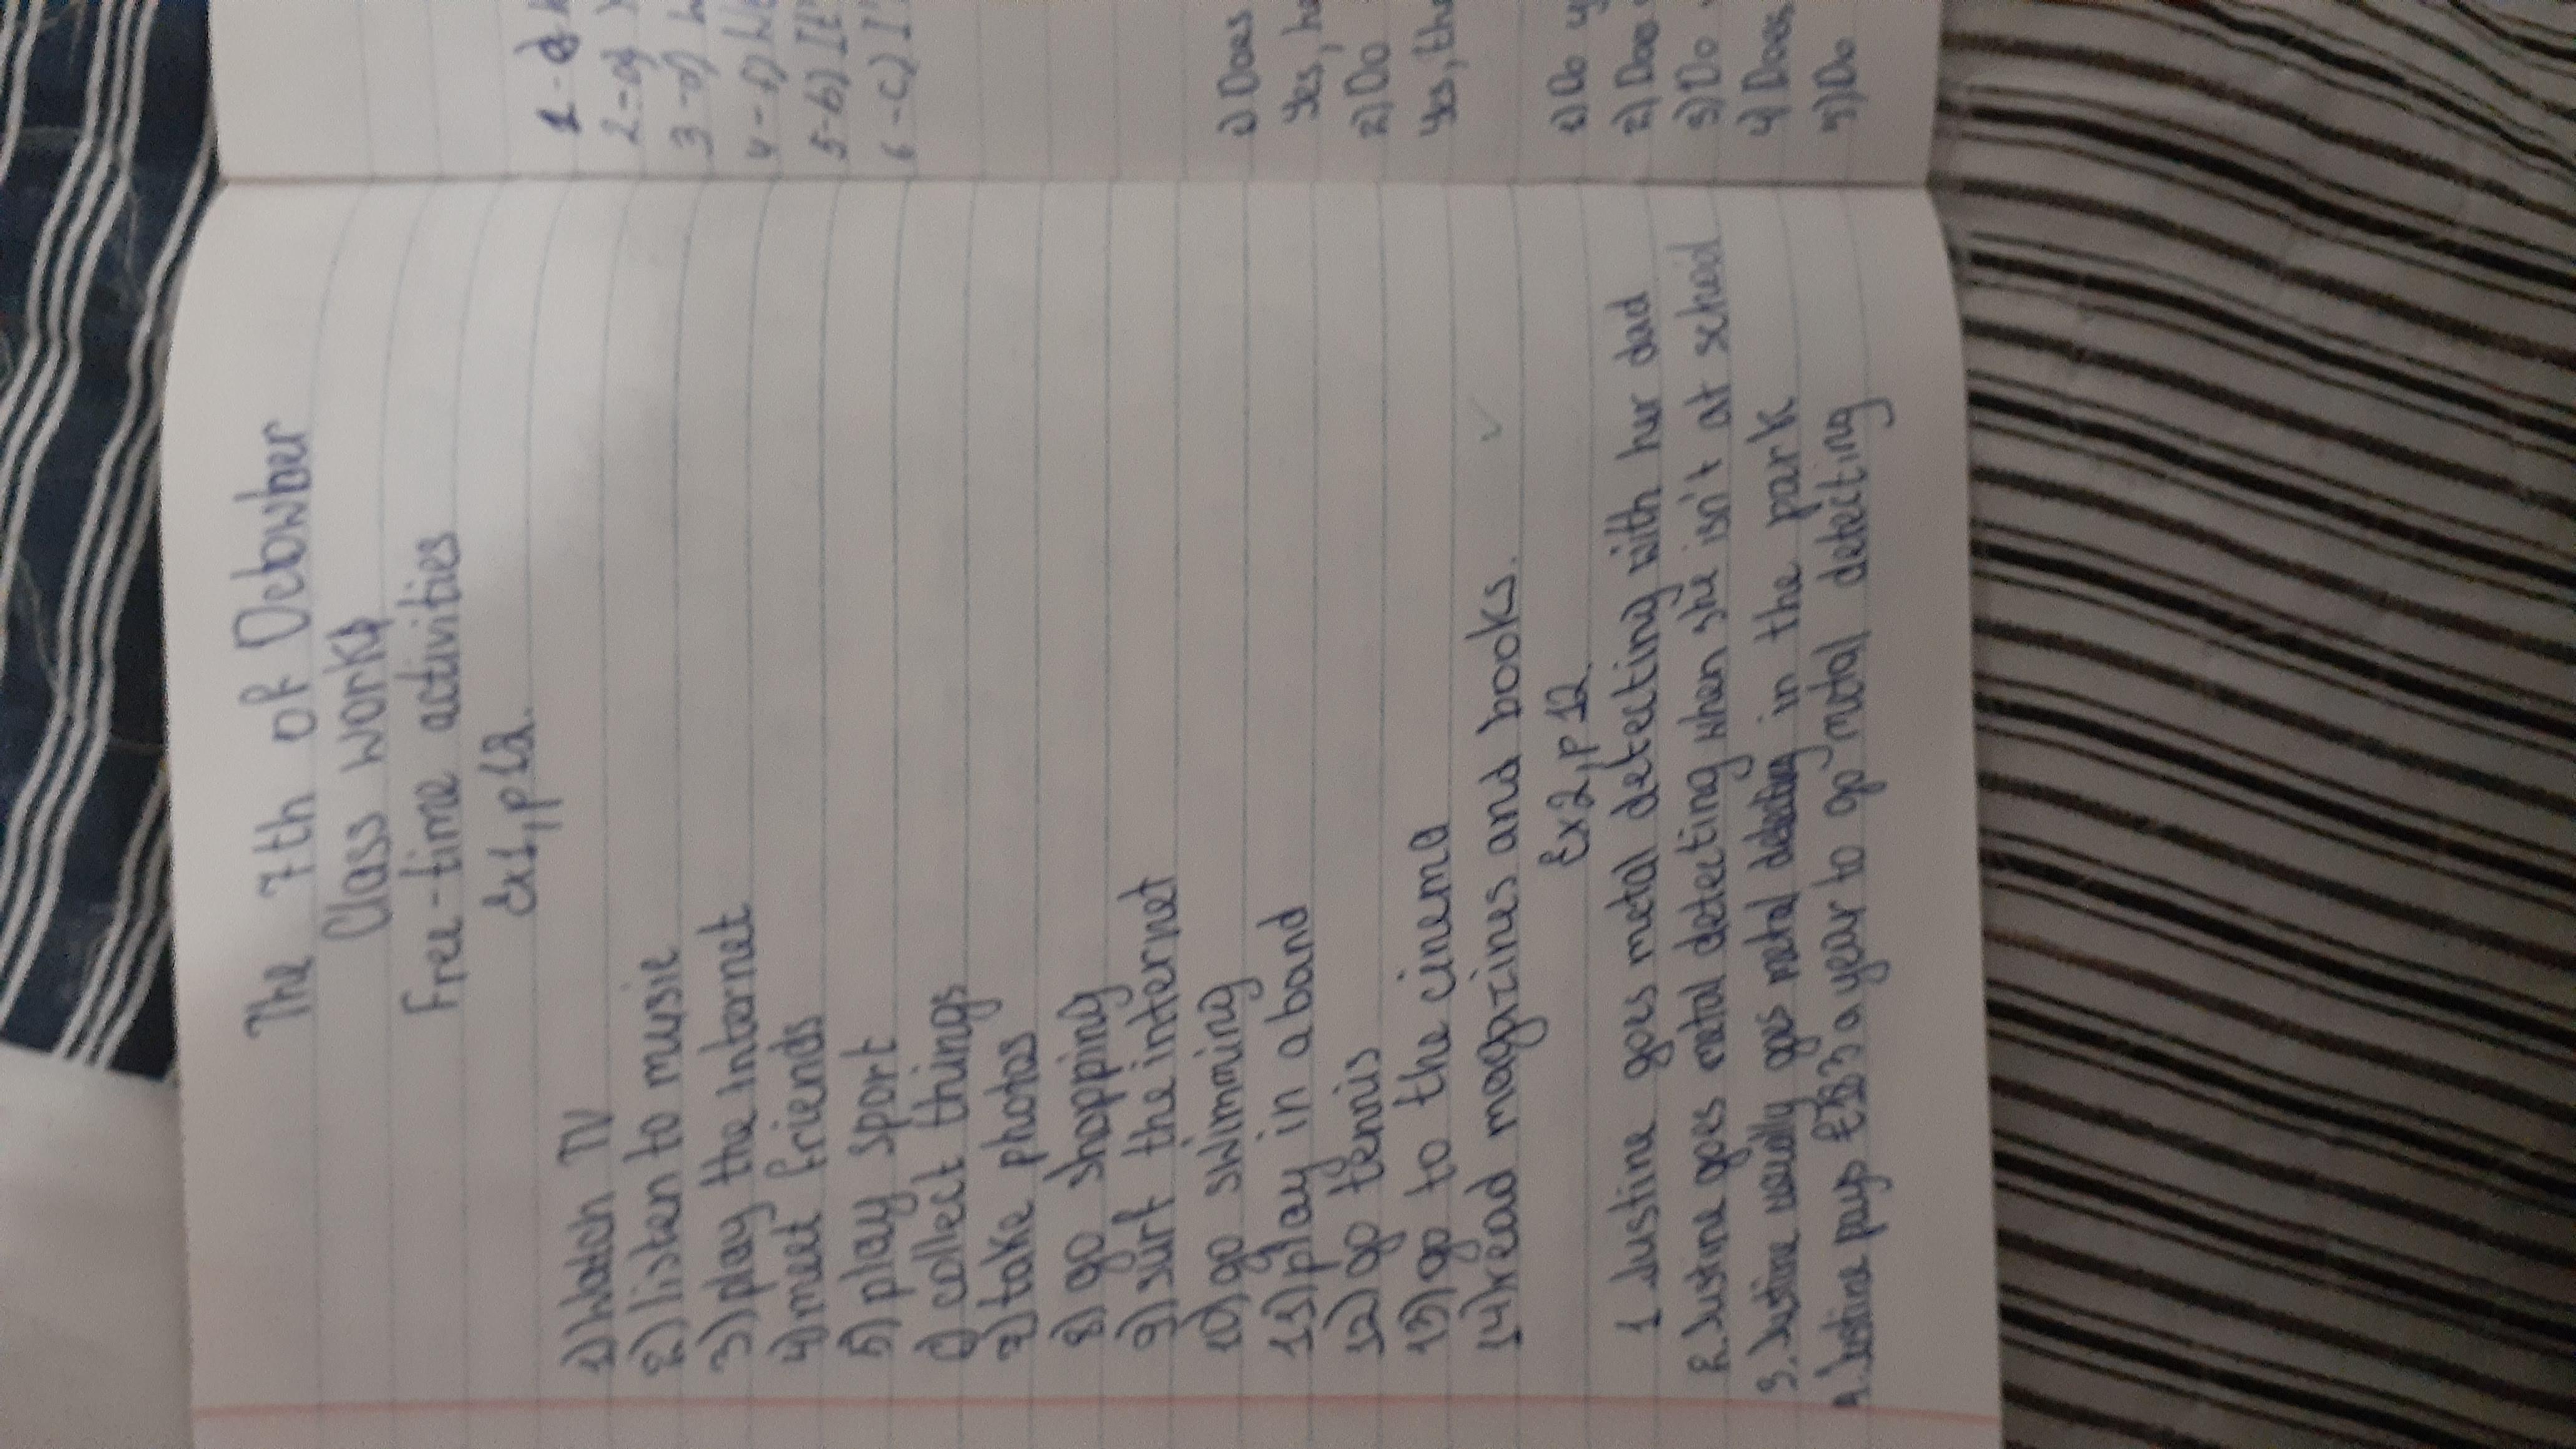 The 7th of Octowber
Class work
Free-time activities
Ex1, p12.
1) Watch TV
2) listen to music
3) play the Internet
4) meet friends
5) play sport
6) collect things
7) take photos
8) go shopping
9) surf the internet
10) go swimming
11) play in a band
12) go tennis
13) go to the cinema
14) read magazines and books.
Ex2, p12.
1 Justine goes metal detecting with her dad
2. Justine goes metal detecting when she isn't at school
3. Justine usually goes metal detecting in the park
4. Justine pays a year to go metal detecting
1-
2-
3-
4-
5-b)
6-c)
1) Does
Yes, he
2) Do
Yes, the
1) Do
2) Doo
3) Do
4) Does
5) Do